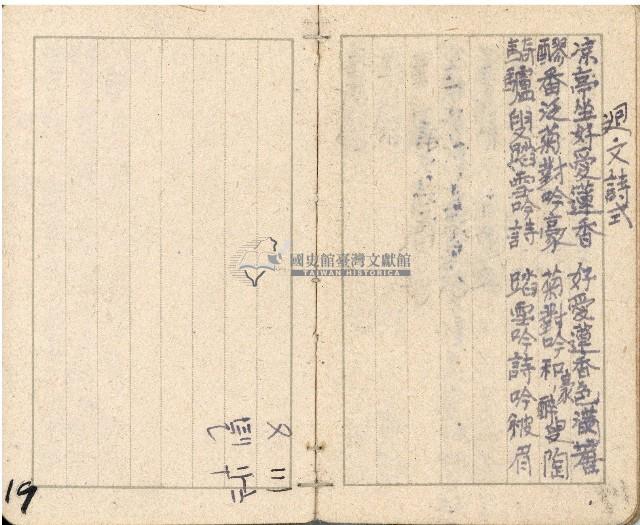 廻文詩式
涼亭坐好愛蓮香 好愛蓮香色滿
醪香泛菊對吟豪 菊對吟豪和醉叟陶
騎驢叟踏雪吟詩 踏雪吟詩吟被眉
國史館臺灣文獻館
TAIWAN HISTORICA
19